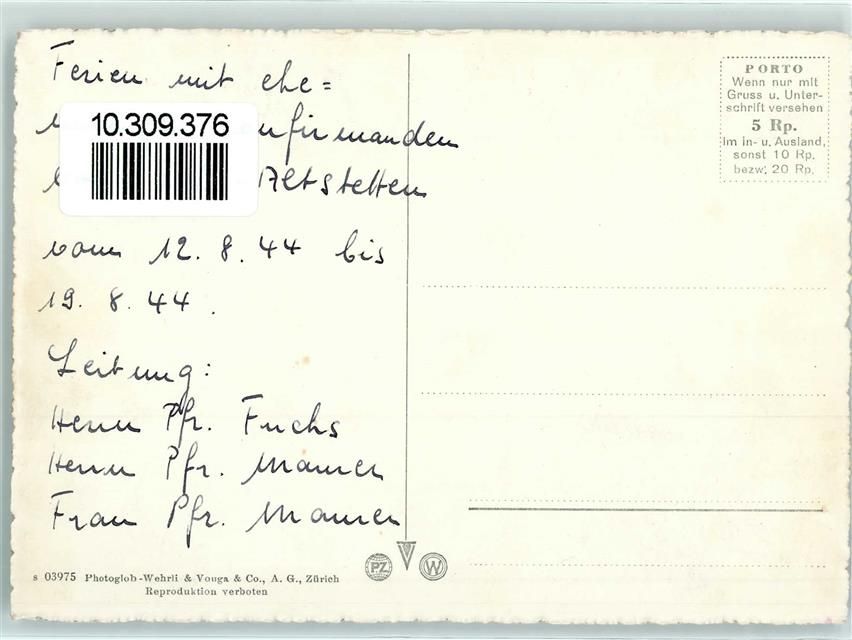 Ferien mit ehe=
onfirmanden
Altstetten
vom 12. 8. 44 bis
19. 8. 44.
Leitung:
Herrn Pfr. Fuchs
Herrn Pfr. Maurer
Frau Pfr. Maurer
10.309.376
PORTO
Wenn nur mit
Gruss u. Unter-
schrift versehen
5 Rp.
im in- u. Ausland,
sonst 10 Rp.
bezw. 20 Rp.
s 03975 Photoglob-Wehrli & Vouga & Co., A. G., Zürich
Reproduktion verboten
PZ
W